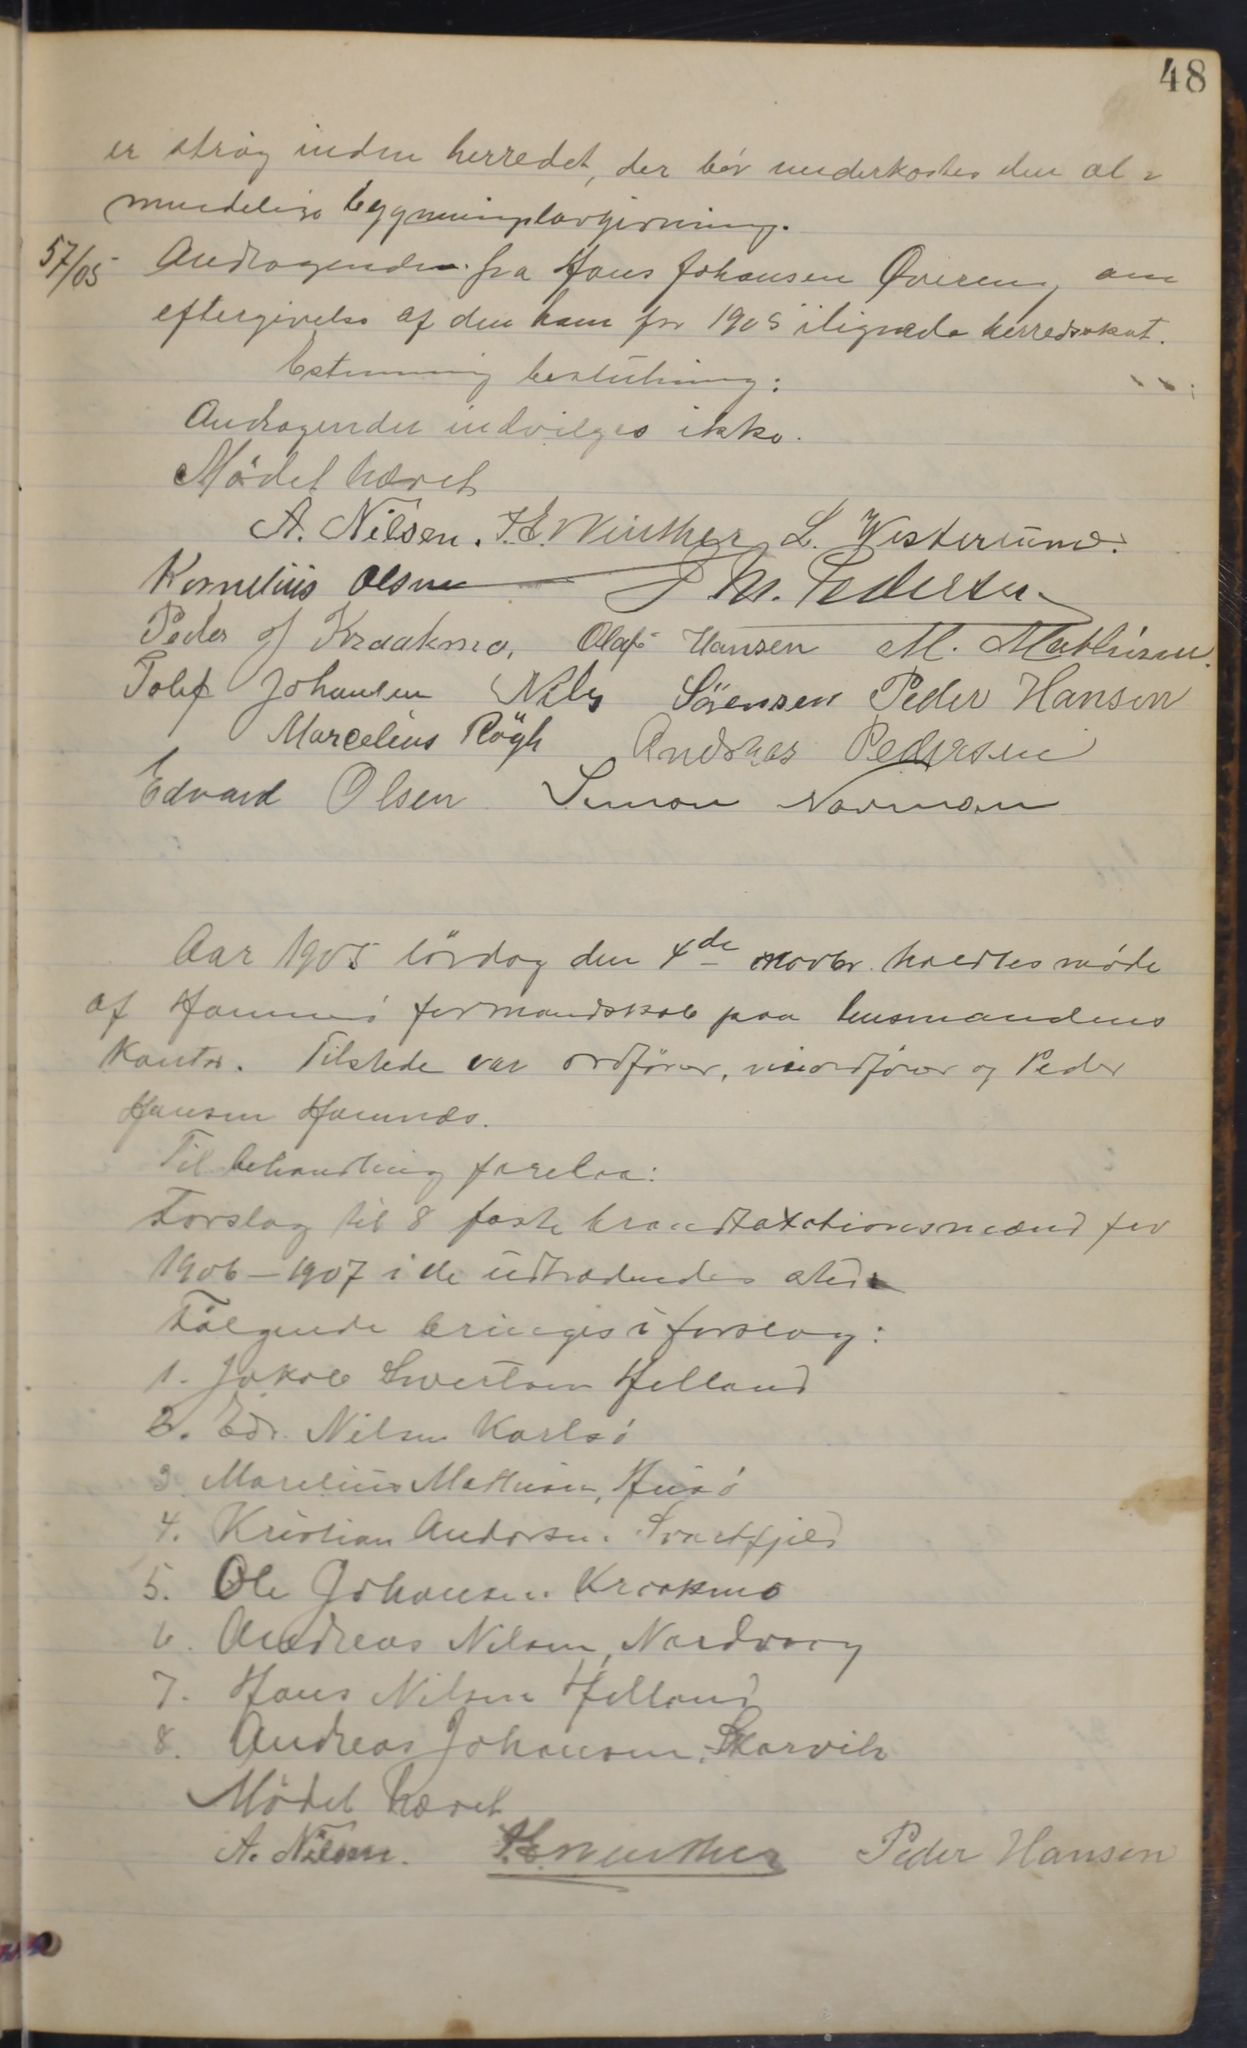 48
er strøg inden herredet, der bør underkastes den al-
mindelige bygningslovgivning.
57/05 Andragende fra Hans Johansen Övereng om
eftergivelse af den ham for 1905 ilignede herredsskat.
Estemmig beslutning:
Andragendet indvilges ikke.
Mödet hævet
A. Nilsen. F.E. Winther L. Westerlund.
Kornelius Olsen P M. Pedersen
Peder J Kraakmo, Olaf Hansen M. Mathisen.
Tolef Johansen Nils Sörensen Peder Hansen
Marcelius Rögh Andreas Pedersen
Edvard Olsen Simon Norman
Aar 1905 lördag den 4de novbr. holdtes möde
af Hammerö formandskab paa lensmandens
kontor. Tilstede var ordförer, viceordförer og Peder
Hansen Hamnæs.
Til behandling forelaa:
Forslag til 8 faste brandtaxtionsmænd for
1906-1907 i de udtrædendes sted
Fölgende bringes i forslag:
1. Jakob Sivertsen Helland
2. Edv. Nilsen Karlsö
3. Marelius Mathisen, Husö
4. Kristian Andersen. Svartfjeld
5. Ole Johansen. Kraakmo
6. Andreas Nilsen, Nordvaag
7. Hans Nilsen Helland
8. Andreas Johansen, Skarvik
Mödet hævet
A. Nilsen. F.E. Winther Peder Hansen